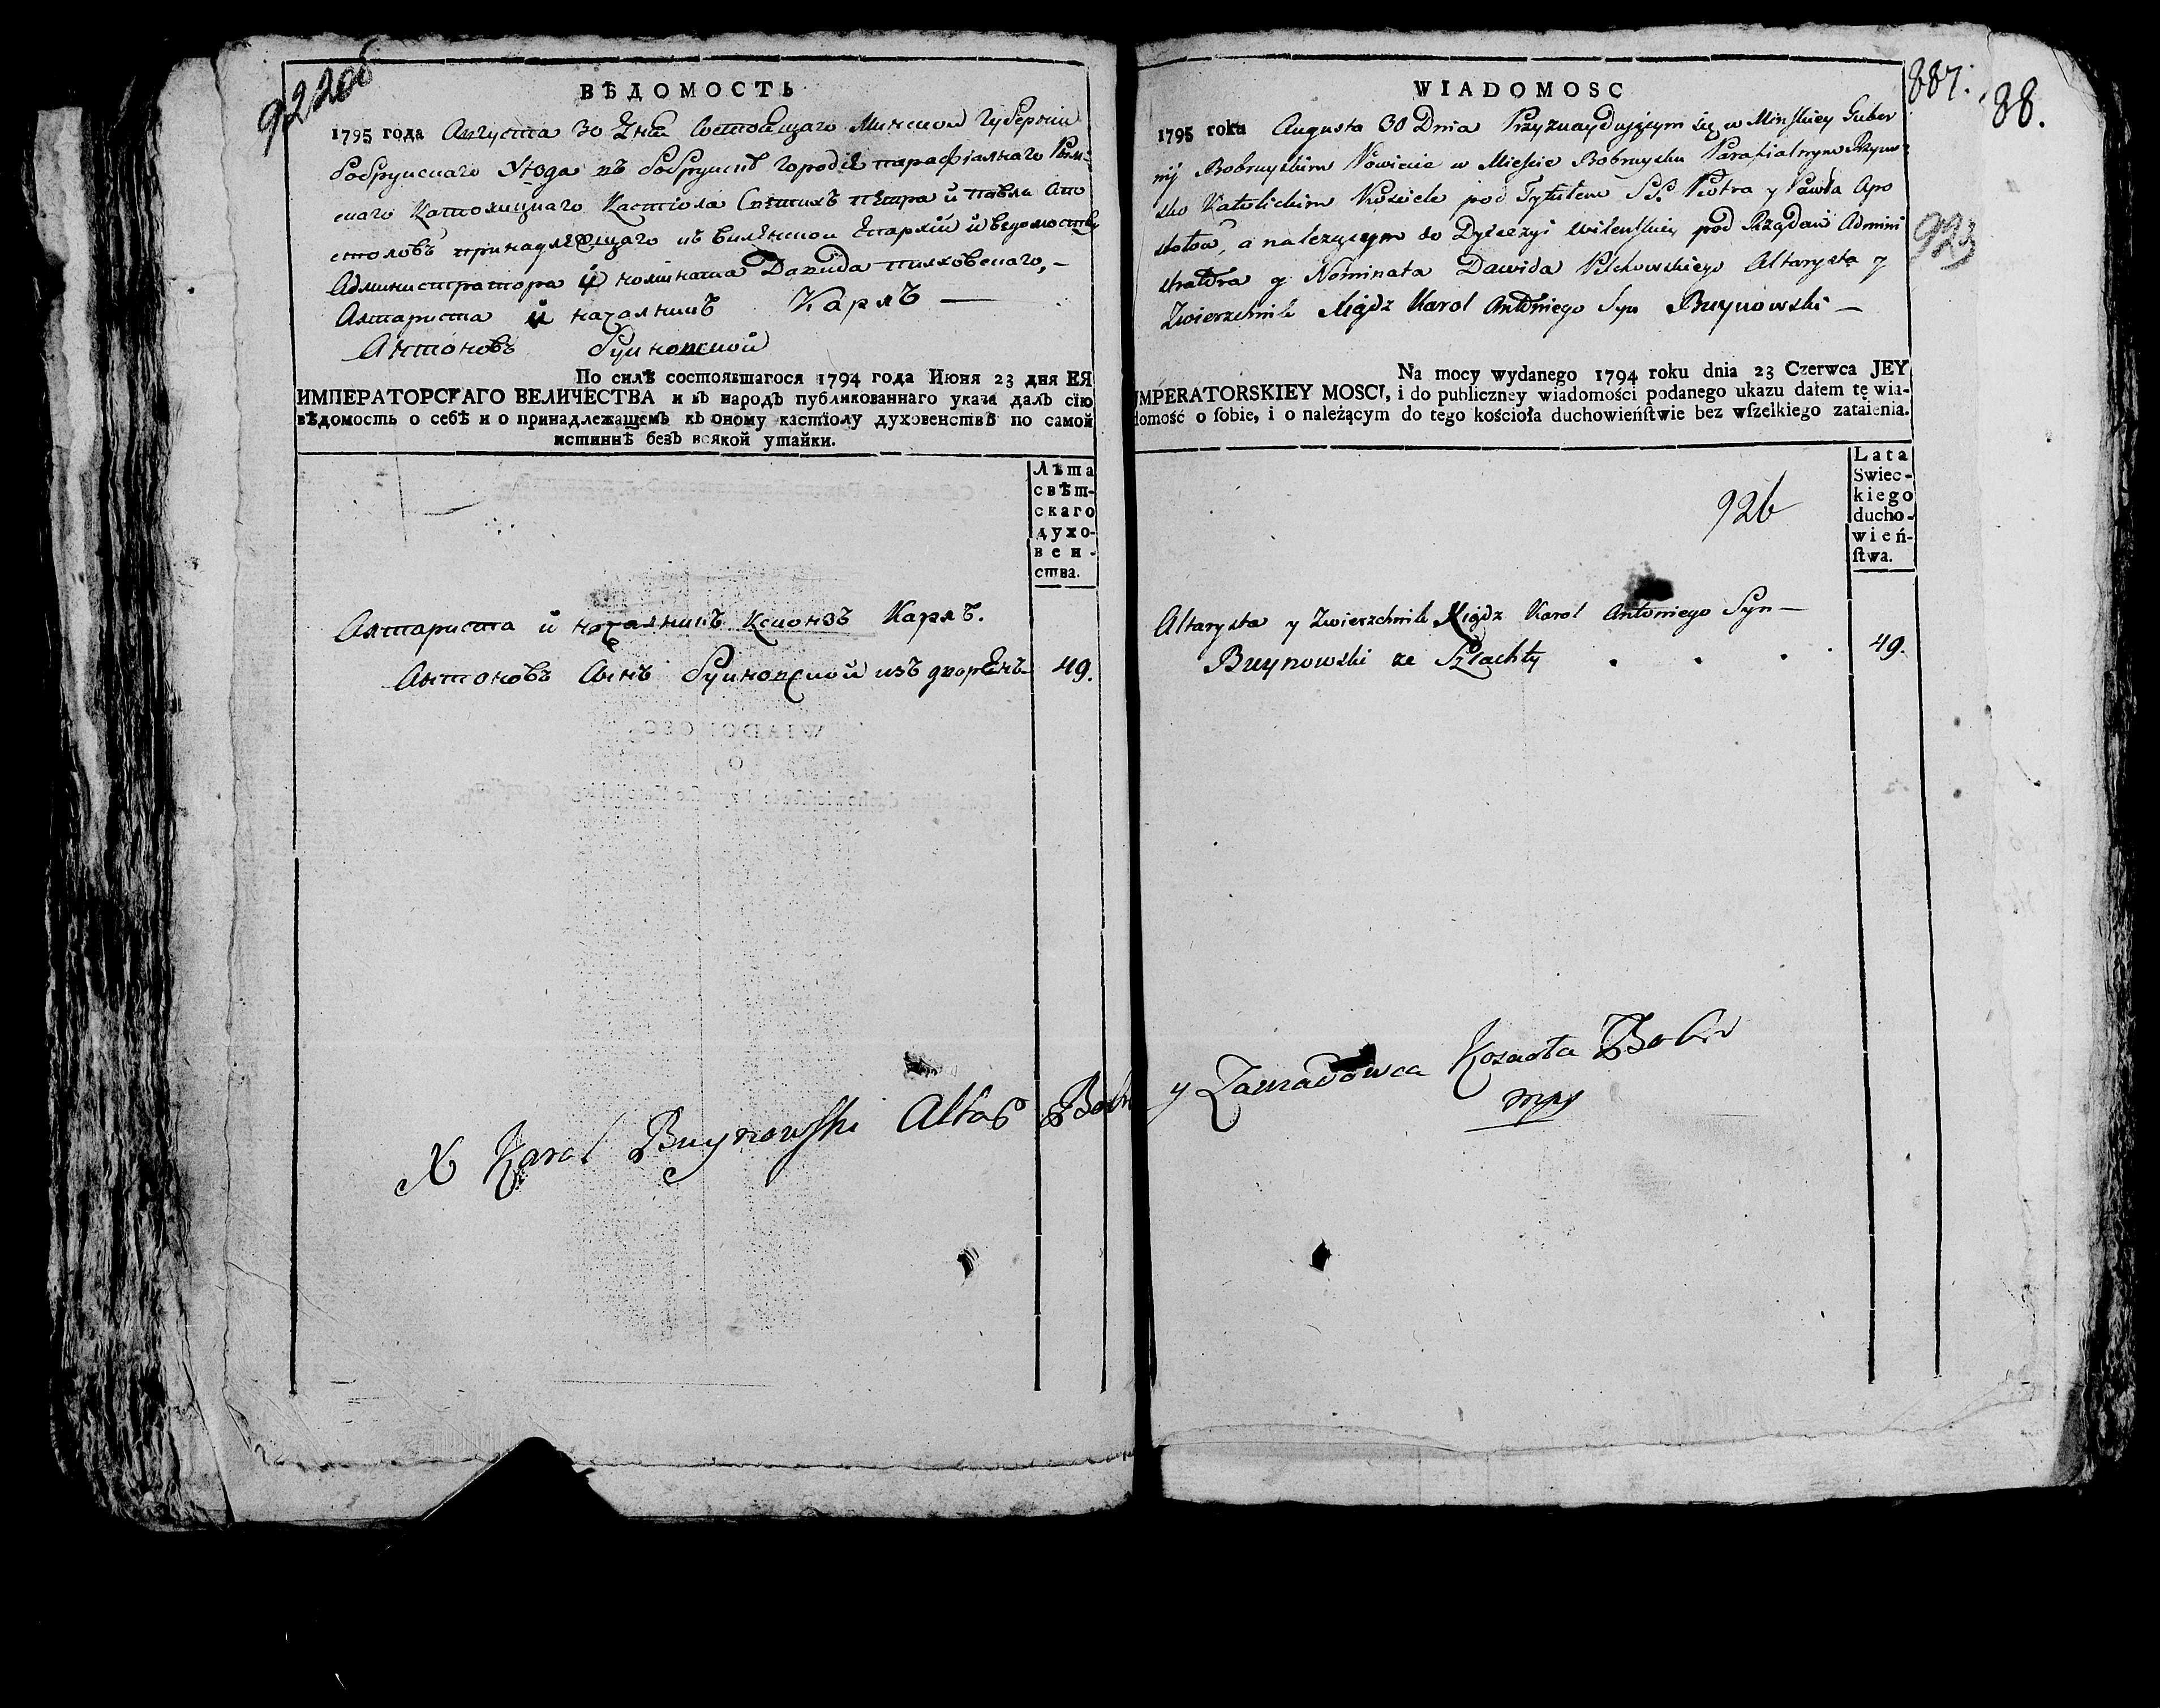 922об
ВѢДОМОСТЬ
1795 года Августа 30 Дня Состоящаго Минской Губернии
Бобруйскаго Уѣзда въ Бобруйскѣ городѣ парафiалнаго Рим-
скаго Католицкаго Кастiола Святихъ пѣтра й павла Апо
столовъ принадлежащаго къ виленской Епархiй й ведомству
Администратора й номината Давида пилховскаго, —
Алтариста й началникъ Карлъ —
Антоновъ Буйновской
По силѣ состоявшагося 1794 года Июня 23 дня ЕЯ
ИМПЕРАТОРСГАГО ВЕЛИЧЕСТВА и въ народъ публикованнаго указа далъ сїю
вѣдомость о себѣ и о принадлежащемъ къ оному кастїолу духовенствѣ по самой
истиннѣ безъ всякой утайки.
Лѣта
свѣт-
скаго
духо-
вен-
ства.
Алтариста й началникъ Ксионзъ Карлъ.
Антоновъ Сынъ Буйновской изъ дворянъ 49.
X Karol Buynowski Altar Bobr
887.
88.
WIADOMOSC
1795 roku Augusta 30 Dnia Przy znaydującym się w Minskiey Guber
nij Bobruyskim Powiecie w Mieście Bobruysku Parafialnym Rzyms-
sko Katolickim Kościele pod Tytułem SS. Piotra y Pawła Apo
stołow, a należącym do Dyecezyi Wilenskiey pod Rządem Admini
stratora y Nominata Dawida Pilchowskiego Altarysta y
Zwierzchnik Xiądz Karol Antoniego Syn Buynowski —
923
Na mocy wydanego 1794 roku dnia 23 Czerwca JEY
IMPERATORSKIEY MOSCI, i do publiczney wiadomości podanego ukazu dałem tę wia-
domość o sobie, i o należącym do tego kościoła duchowieństwie bez wszelkiego zataienia.
Lata
Swiec-
kiego
ducho-
wień-
stwa.
926
Altarysta y Zwierzchnik Xiądz Karol Antoniego Syn —
Buynowski ze Szlachty . . . . 49.
y Zawiadowca Koscioła Bobr
mpp